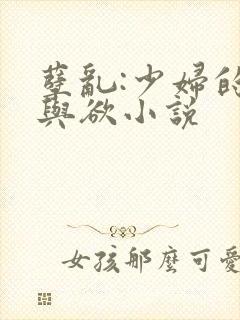 孽亂:少婦的
與欲小說
女孩那麼可愛